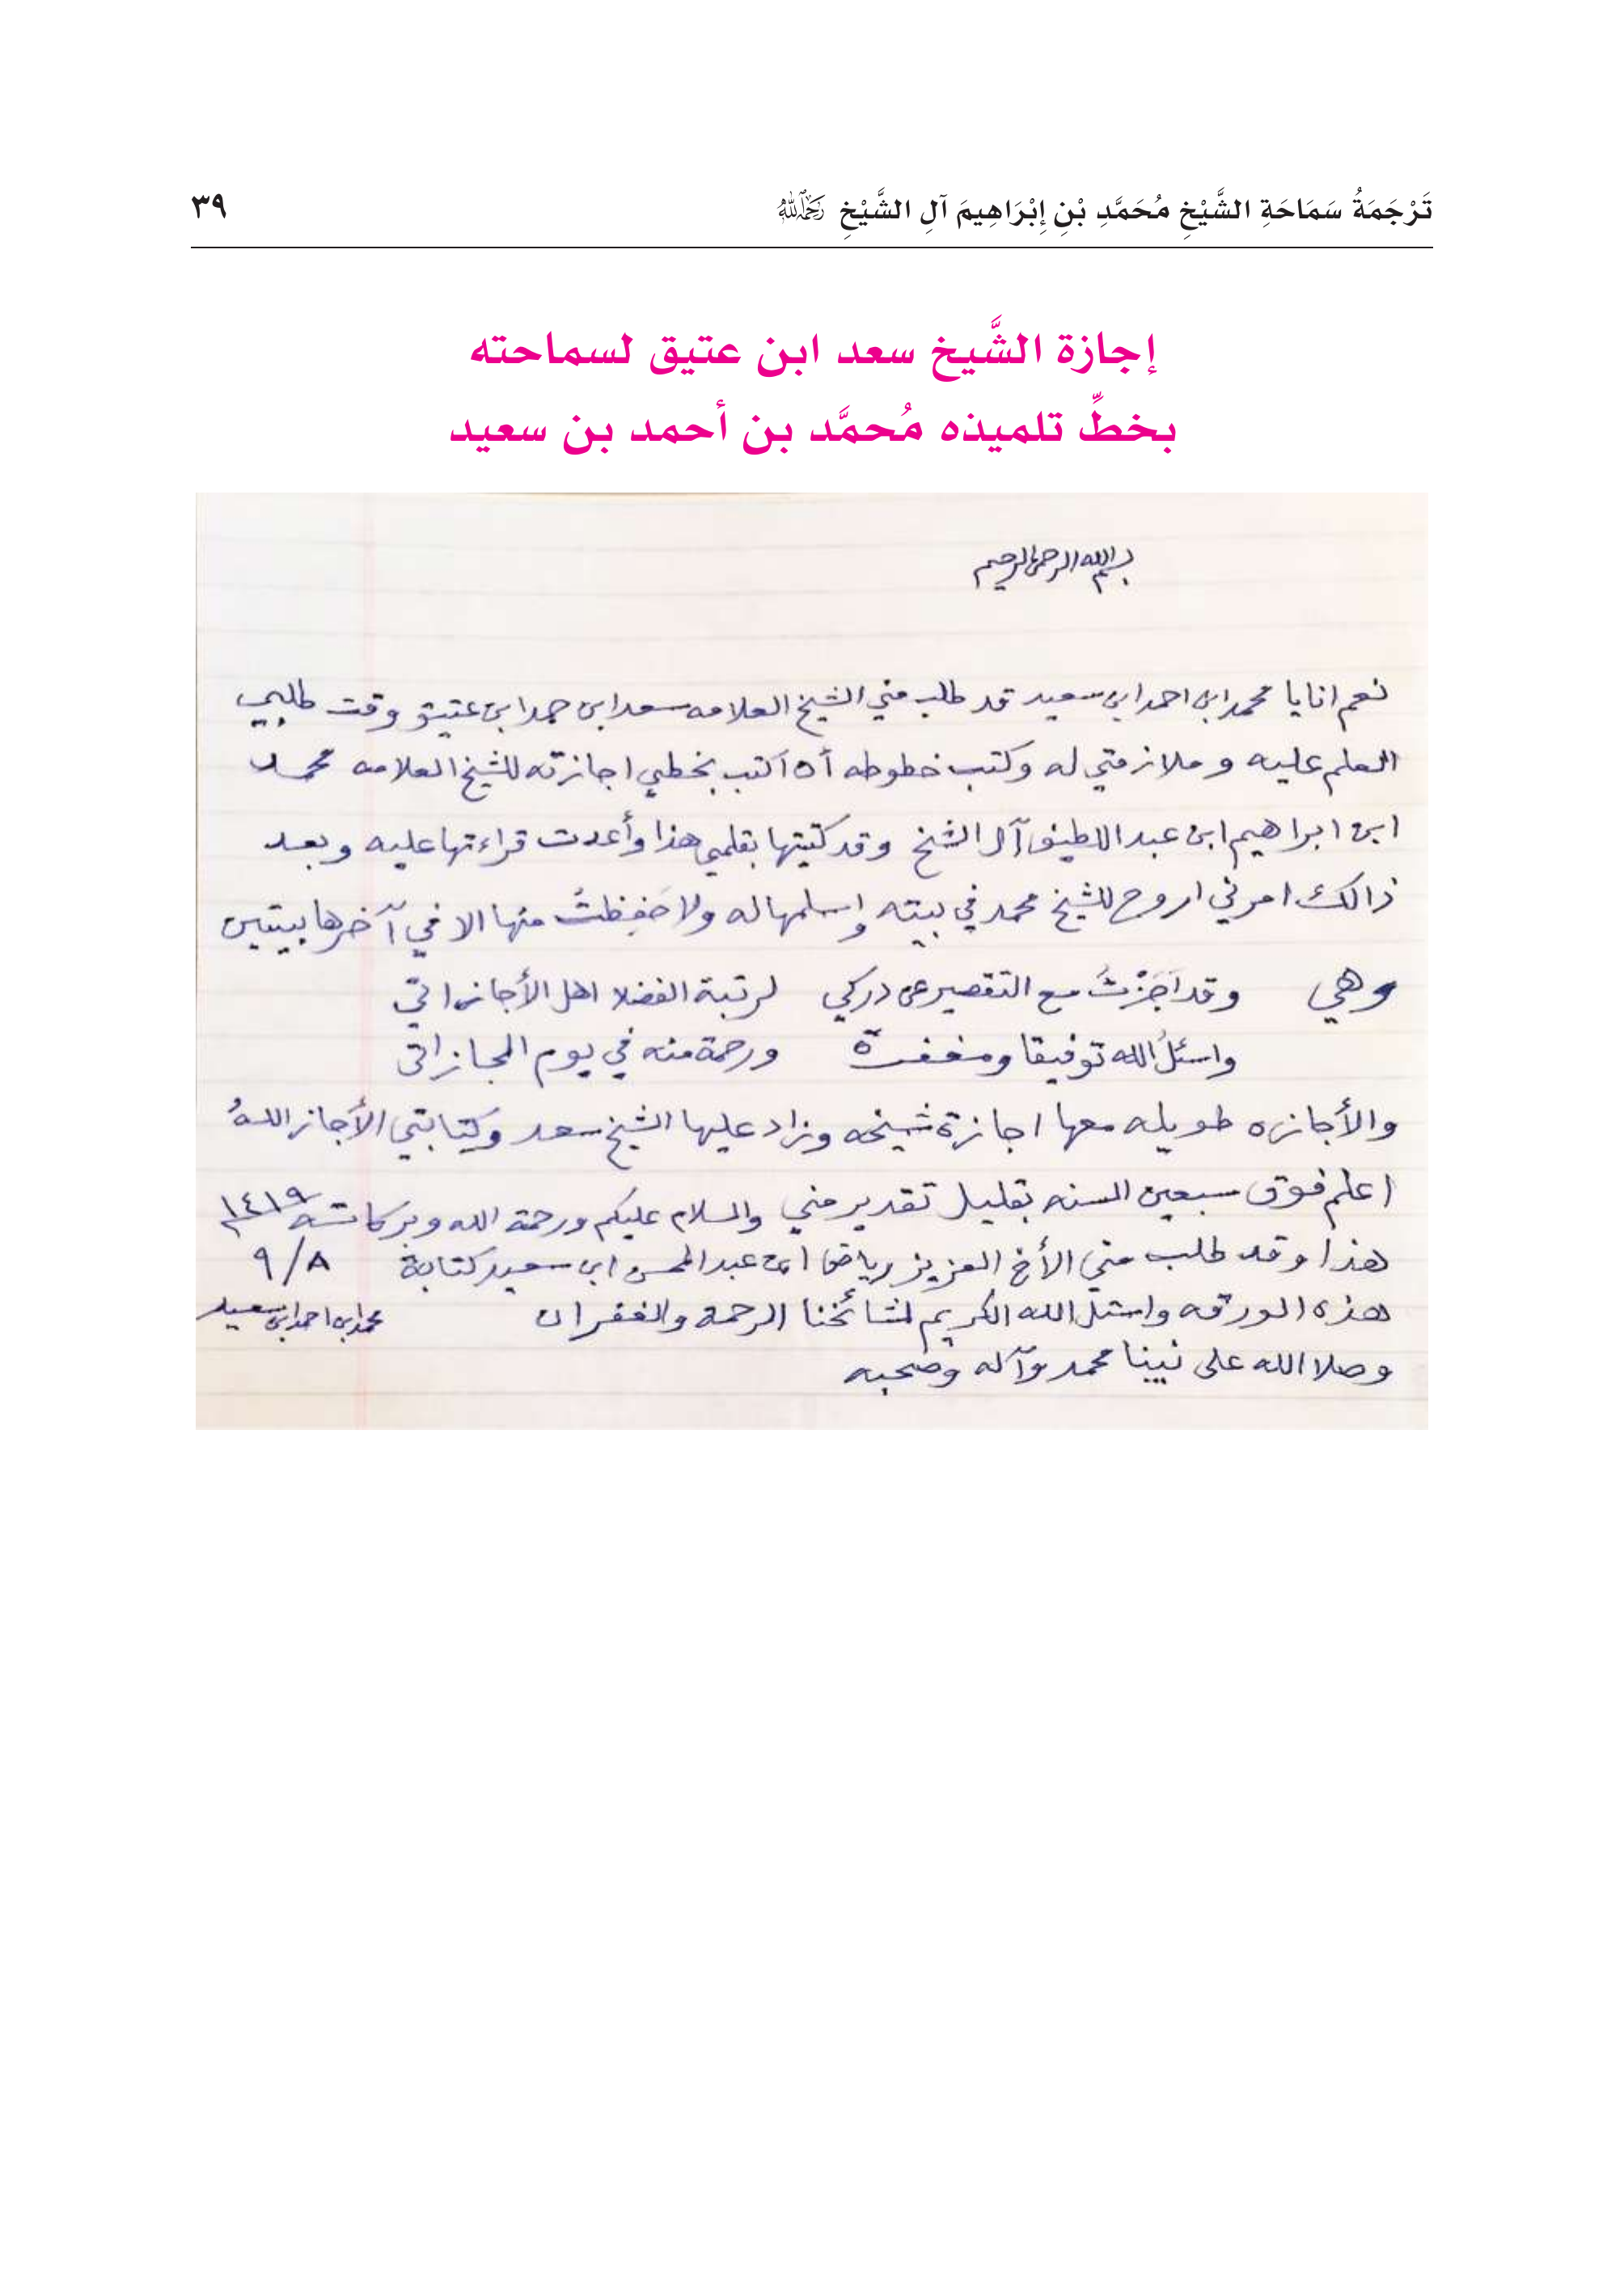 تَرْجَمَةُ سَمَاحَةِ الشَّيْخِ مُحَمَّدِ بْنِ إِبْرَاهِيمَ آلِ الشَّيْخِ رَحِمَهُ اللَّهُ ٣٩
إجازة الشَّيخ سعد ابن عتيق لسماحته
بخطِّ تلميذه مُحمَّد بن أحمد بن سعيد
بسم الله الرحمن الرحيم
نعم انا يا محمد ابن احمد ابن سعيد قد طلب مني الشيخ العلامه سعد ابن حمد ابن عتيق وقت طلبي
العلم عليه وملازمتي له وكتب خطوطه أن اكتب بخطي اجازته للشيخ العلامه محمد
ابن ابراهيم ابن عبد اللطيف آل الشخ وقد كتبتها بقلمي هذا وأعدت قراءتها عليه وبعد
ذالك امرني اروح للشيخ محمد في بيته واسلمها له ولا حَفِظتُ منها الا في آخرها بيتين
وهي وقد اَجَزْتُ مع التقصير عن دركي لرتبة الفضلا اهل الأجازاتي
واسئلُ الله توفيقا ومغفرة ورحمة منه في يوم المجازاتي
والأجازه طويله معها اجازة شيخه وزاد عليها الشيخ سعد وكتابتي الأجاز اللهُ
اعلم فوق سبعين السنه بقليل تقدير مني والسلام عليكم ورحمة الله وبركاته ١٤١٩
هذا وقد طلب مني الأخ العزيز رياض ابن عبد المحسن ابن سعيد كتابة ٩/٨
هذه الورقه واسئل الله الكريم لمشائخنا الرحمه والغفران محمد ابن احمد ابن سعيد
وصلا الله على نبينا محمد وآله وصحبه